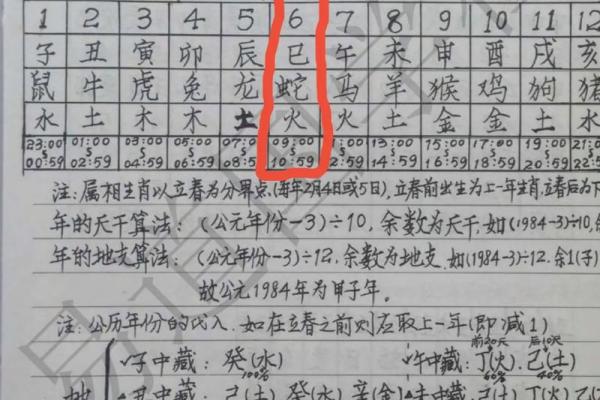 1 2 3 4 5 6 7 8 9 10 11 12
子 丑 寅 卯 辰 巳 午 未 申 酉 戌 亥
鼠 牛 虎 兔 龙 蛇 马 羊 猴 鸡 狗 猪
水 土 木 木 土 火 火 土 金 金 土 水
23:00 01:00 03:00 05:00 07: 09:00 1:00 13:00 15:00 17:00 19:00 21:
00:59 02:59 04:59 06:59 08:5 10:59 2:59 14:59 16:59 18:59 20:59 22:
注:属相生肖以立春为分界点,(每年2月4日或5日),立春前出生为上一年生肖,立春后为下
年的天干算法:(公元年份-3)÷10,余数为天干,如(1984-3)÷10,余
年的地支算法:(公元年份-3)÷12.余数为地支.如(1984-3)÷12.余1(子)
故公元1984年为甲子年。
注:公历年份的代入.如在立春之前则应取上一年(即减1)
前20天 后10天
子中藏:癸(水) 午中藏:丁(火).己(土)
100%
丑中藏:己(土) 癸(水) 辛(金) 未中藏:己(土)丁(火)乙